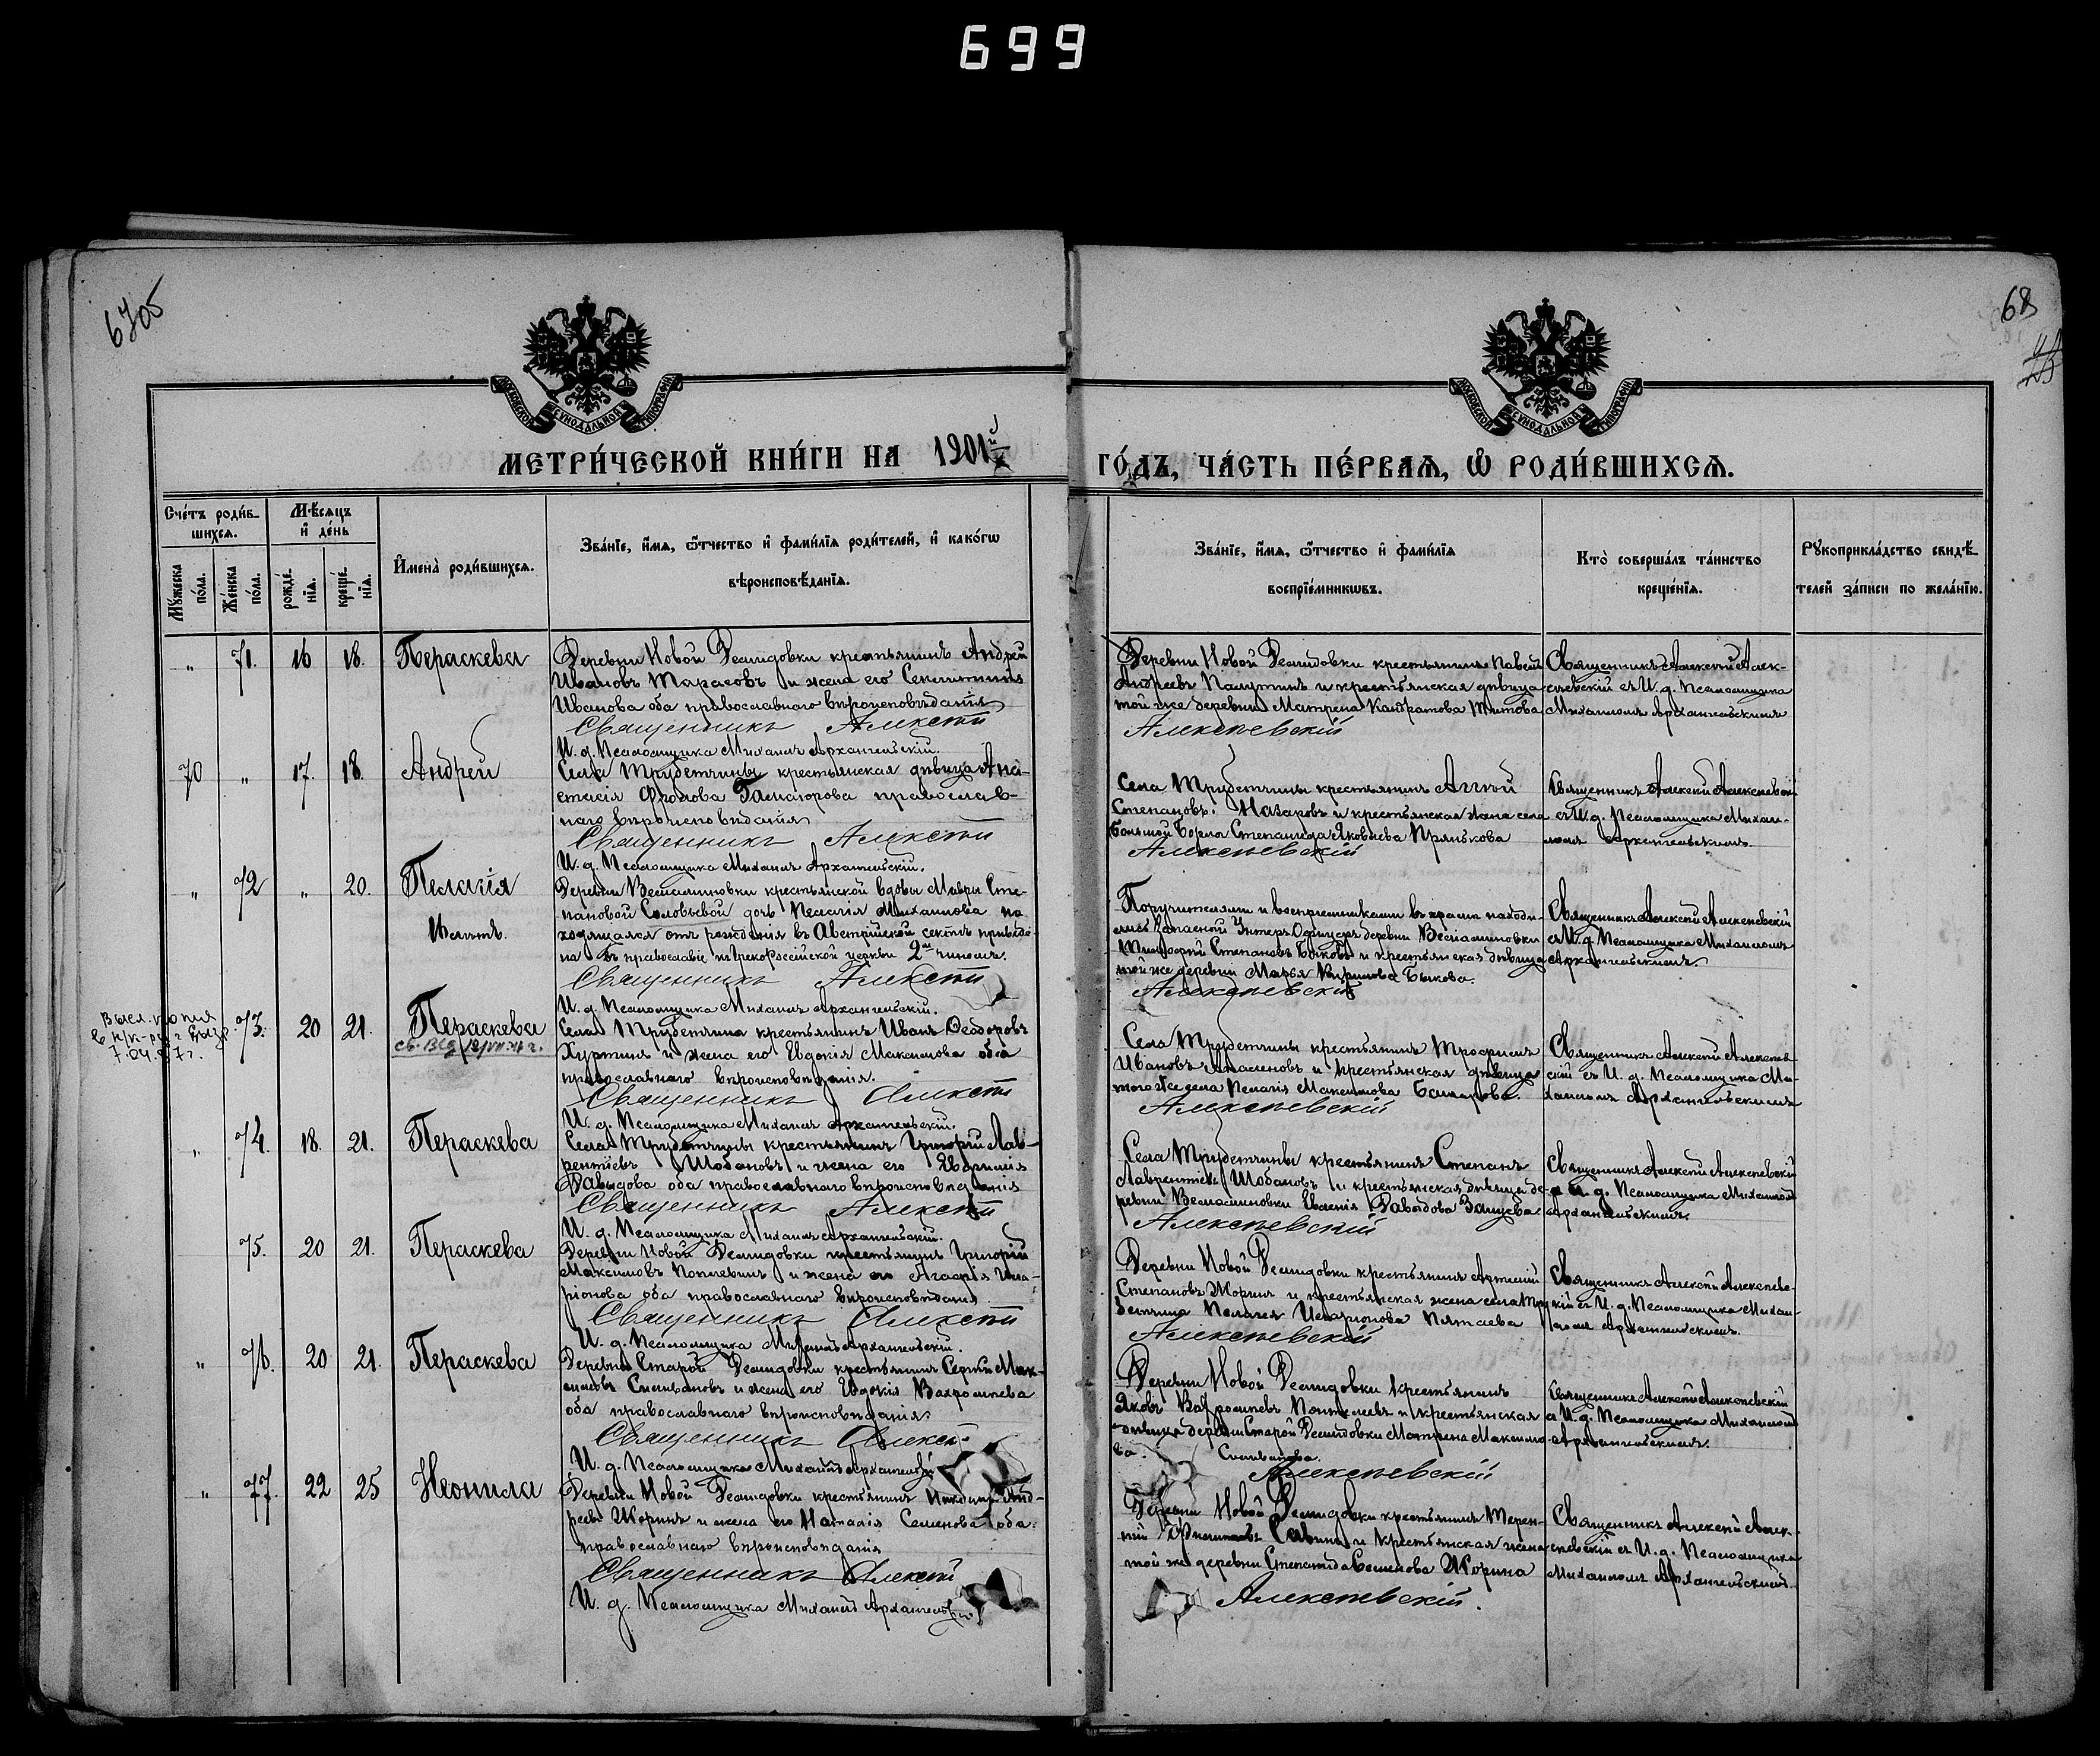 699
67об
68
МОСКОВСКОЙ СΥНОДАЛЬНОЙ ТИПОГРАФІИ
МОСКОВСКОЙ СΥНОДАЛЬНОЙ ТИПОГРАФІИ
МЕТРИ́ЧЕСКОЙ КНИ́ГИ НА 1901й
ГО́ДЪ, ЧА́СТЬ ПЕ́РВАѦ, Ѡ РОДИ́ВШИХСѦ.
Сче́тъ роди́в-
шихсѧ.
Мѣсѧцъ
и де́нь
Мꙋ́жеска
по́ла.
Же́нска
по́ла.
рожде́-
нїѧ.
креще́-
нїѧ.
И҆мена̀ роди́вшихсѧ.
Зва́нїе, и҆́мѧ, ѻ҆́тчество и҆ фами́лїѧ роди́телей, и҆ како́гѡ
вѣроисповѣ́данїѧ.
Зва́нїе, и҆́мѧ, ѻ҆́тчество и҆ фами́лїѧ
воспрїе́мникѡвъ.
Кто̀ соверша́лъ та́инство
креще́нїѧ.
Рꙋкоприкла́дство свидѣ́-
телей за́писи по жела́нїю.
„ 71. 16 18. Параскева
Деревни Новой Демидовки крестьянинъ Андрей
Ивановъ Тарасовъ и жена его
Иванова оба православнаго вѣроисповѣданія
Священникъ Алексѣй
И. д. Псаломщика Михаилъ Архангельскій.
Деревни Новой Демидовки крестьянинъ Павелъ
Андреевъ и крестьянская дѣвица
той же деревни Матрена Титова
Алексѣевскій
Священникъ Алексѣй Алек-
сѣевскій съ И. д. Псаломщика
Михаиломъ Архангельскимъ
70 „ 17. 18. Андрей
Села Трубетчины крестьянская дѣвица Ана-
стасія Фролова православ-
наго вѣроисповѣданія
Священникъ Алексѣй
И. д. Псаломщика Михаилъ Архангельскій.
Села Трубетчины крестьянинъ
Степановъ Назаровъ и крестьянская жена села
Степанида Яковлева
Алексѣевскій
Священникъ Алексѣй Алексѣевскій
съ И. д. Псаломщика Михаи-
ломъ Архангельскимъ.
„ 72 „ 20. Пелагія
Деревни крестьянской вдовы Мавры Сте-
пановой Соловьевой дочь Пелагія Михаилова на-
ходящаяся отъ рожденія въ Австрійской сектѣ приведе-
на въ православіе Грекороссійской церкви 2м чиномъ.
Священникъ Алексѣй
И. д. Псаломщика Михаилъ Архангельскій.
Поручителями и воспріемниками въ храмѣ находи-
лись Запасной Унтеръ Офицеръ деревни
Степановъ Быковъ и крестьянская дѣвица
той же деревни Марья Кирилова Быкова.
Алексѣевскій
Священникъ Алексѣй Алексѣевскій
съ И. д. Псаломщика Михаиломъ
Архангельскимъ.
7.04.87г.
73. 20 21. Параскева
Села Трубетчины крестьянинъ Иванъ Ѳеодоровъ
и жена его Евдокія Максимова оба
православнаго вѣроисповѣданія.
Священникъ Алексѣй
И. д. Псаломщика Михаилъ Архангельскій.
Села Трубетчины крестьянинъ Трофимъ
Ивановъ и крестьянская дѣвица
того же села Пелагія Максимова
Алексѣевскій
Священникъ Алексѣй Алексѣев-
скій съ И. д. Псаломщика Ми-
хаиломъ Архангельскимъ
„ 74. 18. 21. Параскева
Села Трубетчины крестьянинъ Григорій Лав-
рентіевъ Шобановъ и жена его
Давыдова оба православнаго вѣроисповѣданія
Священникъ Алексѣй
И. д. Псаломщика Михаилъ Архангельскій.
Села Трубетчины крестьянинъ Степанъ
Лаврентіевъ Шобановъ и крестьянская дѣвица де-
ревни Евгенія Давыдова
Алексѣевскій
Священникъ Алексѣй Алексѣевскій
съ И. д. Псаломщика Михаиломъ
Архангельскимъ.
75. 20 21. Параскева
Деревни Новой Демидовки крестьянинъ Григорій
Максимовъ и жена его Агафія Ила-
ріонова оба православнаго вѣроисповѣданія
Священникъ Алексѣй
И. д. Псаломщика Михаилъ Архангельскій.
Деревни Новой Демидовки крестьянинъ Артемій
Степановъ Жоринъ и крестьянская жена села Тру-
бетчина Пелагея Иларіонова Пятаева
Алексѣевскій
Священникъ Алексѣй Алексѣевс-
кій съ И. д. Псаломщика Михаи-
ломъ Архангельскимъ.
„ 76. 20 21. Параскева
Деревни Старой Демидовки крестьянинъ Сергѣй Мак-
симовъ и жена его Евдокія Вахромѣева
оба православнаго вѣроисповѣданія.
Священникъ
И. д. Псаломщика Михаилъ
Деревни Новой Демидовки крестьянинъ
Яковъ Вахромѣевъ и крестьянская
дѣвица деревни Старой Демидовки Матрена Максимо-
ва
Алексѣевскій
Священникъ Алексѣй Алексѣевскій
съ И. д. Псаломщика Михаиломъ
Архангельскимъ.
„ 77. 22 25 Неонила
Деревни Новой Демидовки крестьянинъ Анд-
реевъ Жоринъ и жена его Наталія Семенова оба
православнаго вѣроисповѣданія
Священникъ Алексѣй
И. д. Псаломщика Михаилъ
Деревни Новой Демидовки крестьянинъ Терен-
тій Савинъ и крестьянская жена
той же деревни Степанида Семенова Жорина
Алексѣевскій.
Священникъ Алексѣй Алек-
сѣевскій съ И. д. Псаломщика
Михаиломъ Архангельскимъ.